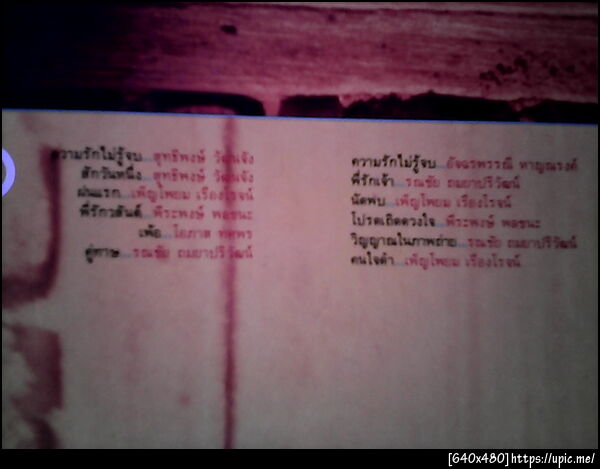 ความรักไม่รู้จบ...สุทธิพงษ์ วัฒนจัง
สักวันหนึ่ง...สุทธิพงษ์ วัฒนจัง
ฝนแรก...เพ็ญโพยม เรืองโรจน์
พี่รักวสันต์...พีระพงษ์ พลชนะ
เพ้อ...โอภาส ทศพร
คู่ทาษ...รณชัย ถมยาปริวัฒน์
ความรักไม่รู้จบ...อัจฉรพรรณี หาญณรงค์
พี่รักเจ้า...รณชัย ถมยาปริวัฒน์
นัดพบ...เพ็ญโพยม เรืองโรจน์
โปรดเถิดดวงใจ...พีระพงษ์ พลชนะ
วิญญาณในภาพถ่าย...รณชัย ถมยาปริวัฒน์
คนใจดำ...เพ็ญโพยม เรืองโรจน์
[640x480]https://upic.me/